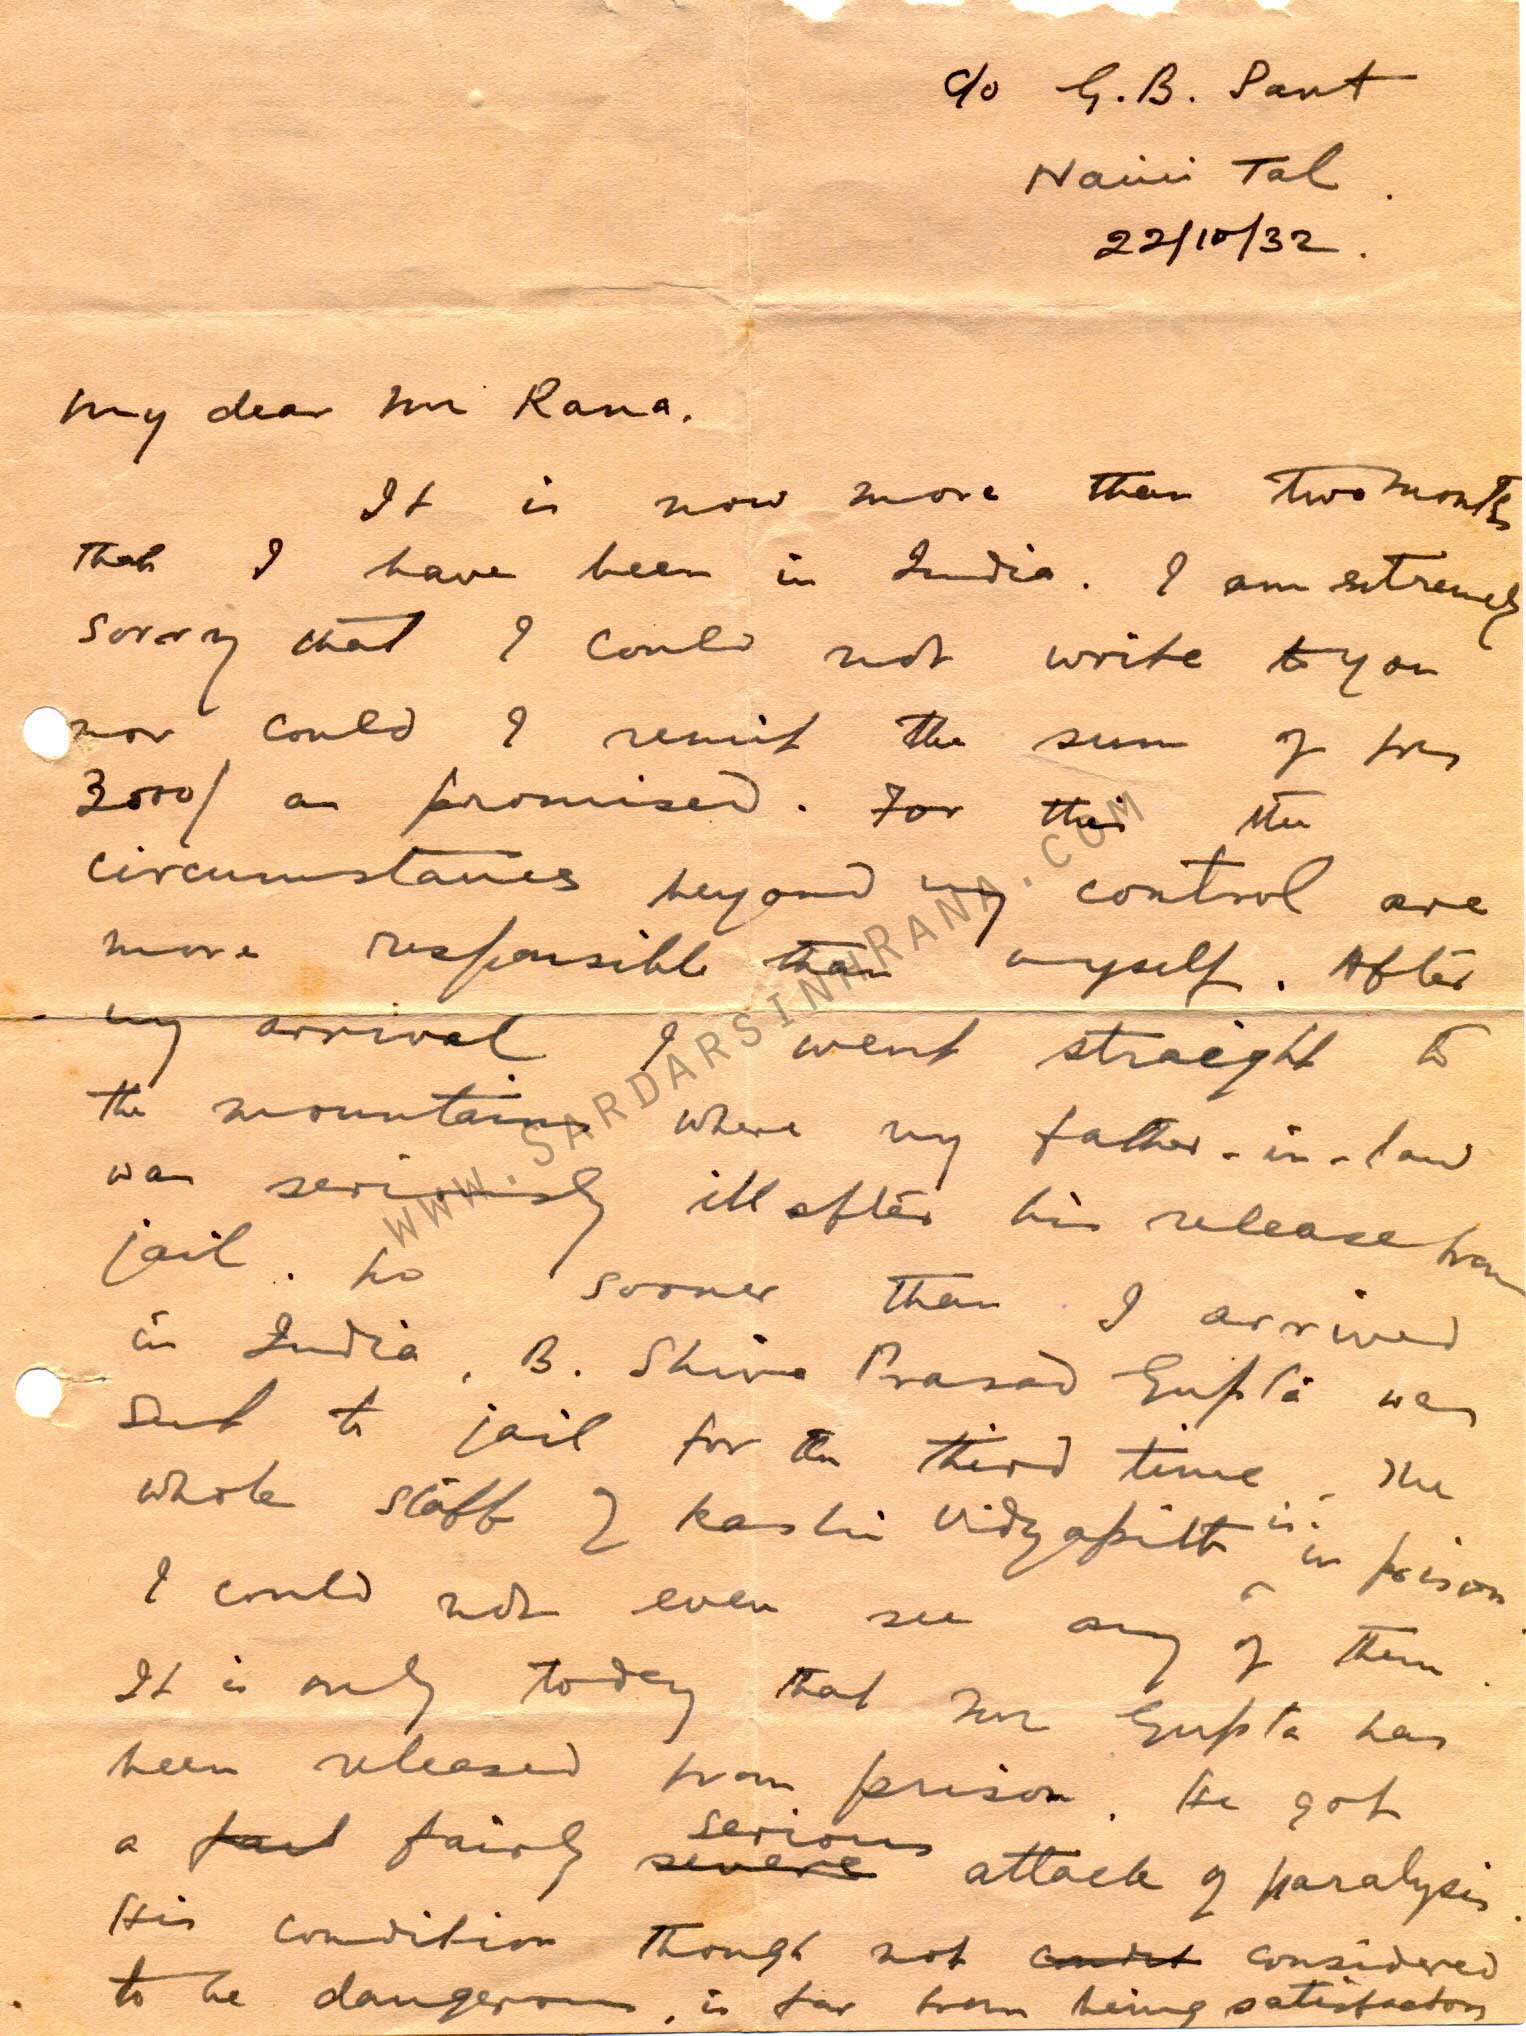 c/o G. B. Pant
Naini Tal.
22/10/32.
My dear Mr Rana.
It is now more than two months
that I have been in India. I am extremely
sorry that I could not write to you
nor could I remit the sum of frs
3000/ as promised. For this the
circumstances beyond my control are
more responsible than myself. After
my arrival I went straight to
the mountains where my father-in-law
was seriously ill after his release from
jail. No sooner than I arrived
in India, B. Shiva Prasad Gupta was
sent to jail for the third time. The
whole staff of Kashi Vidyapith is in prison.
I could not even see any of them.
It is only today that Mr Gupta has
been released from prison. He got
a fairly serious severe attack of paralysis.
His condition though not considered
to be dangerous, is far from being satisfactory
WWW.SARDARSINHRANA.COM